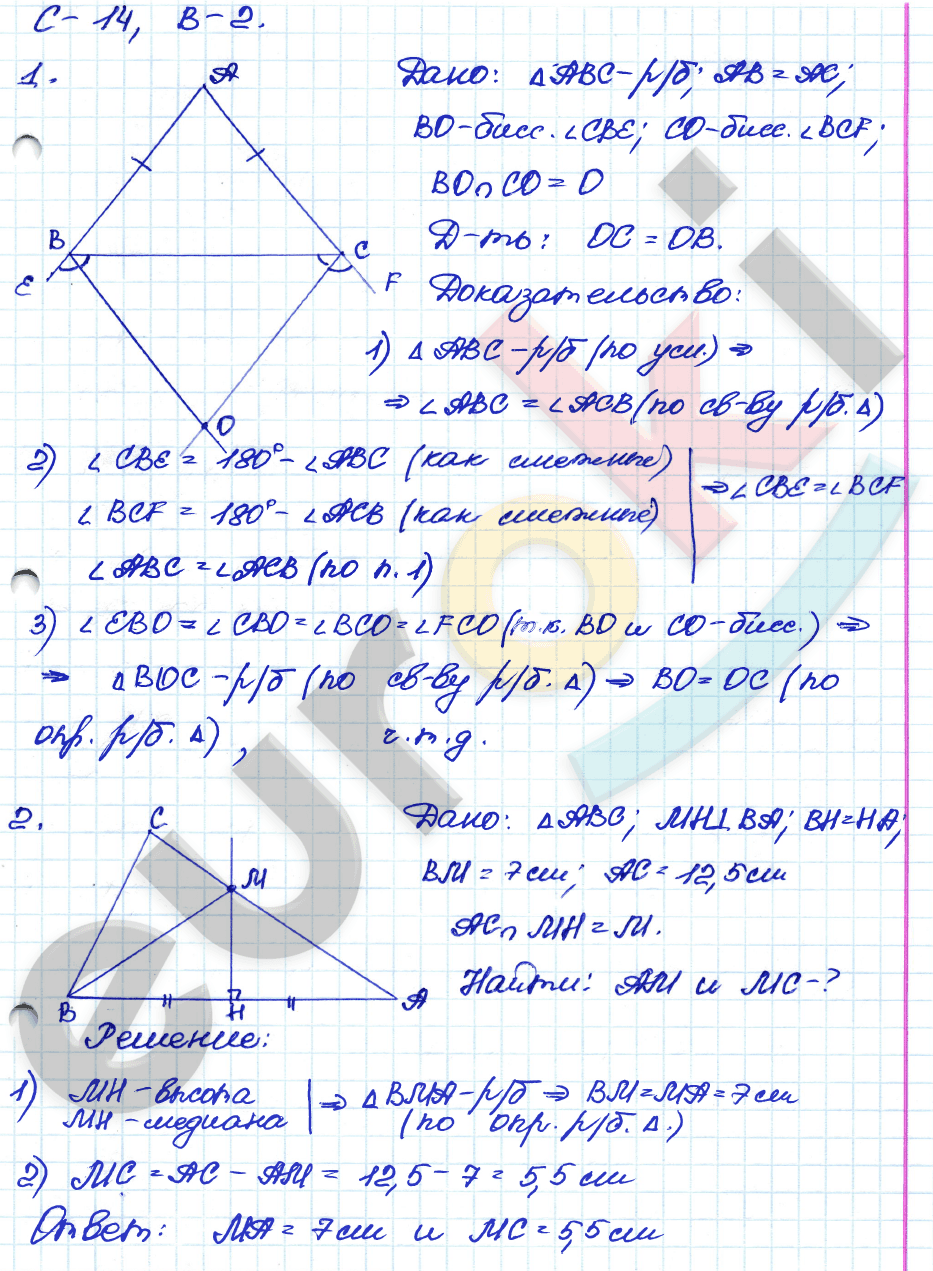 С-14, В-2.
1.
A
B
C
E
F
O
Дано: ΔABC-р/б; AB=AC;
BO-бисс. ∠CBE; CO-бисс. ∠BCF;
BO∩CO=O
Д-ть: OC=OB.
Доказательство:
1) ΔABC-р/б (по усл.) ⇒
⇒ ∠ABC = ∠ACB (по св-ву р/б. Δ)
2) ∠CBE = 180°-∠ABC (как смежные)
∠BCF = 180°-∠ACB (как смежные)
∠ABC = ∠ACB (по п. 1)
⇒ ∠CBE=∠BCF
3) ∠EBO = ∠CBO = ∠BCO = ∠FCO (т.к. BO и CO-бисс.) ⇒
⇒ ΔBOC-р/б (по св-ву р/б. Δ) ⇒ BO=OC (по
опр. р/б. Δ), ч.т.д.
2.
C
M
B
H
A
Дано: ΔABC; MH⊥BA; BH=HA;
BM=7см; AC=12,5см
AC∩MH=M.
Найти: AM и MC-?
Решение:
1) MH-высота
MH-медиана
⇒ ΔBMA-р/б ⇒ BM=MA=7см
(по опр. р/б. Δ.)
2) MC = AC - AM = 12,5 - 7 = 5,5 см
Ответ: MA = 7см и MC = 5,5см
euroki